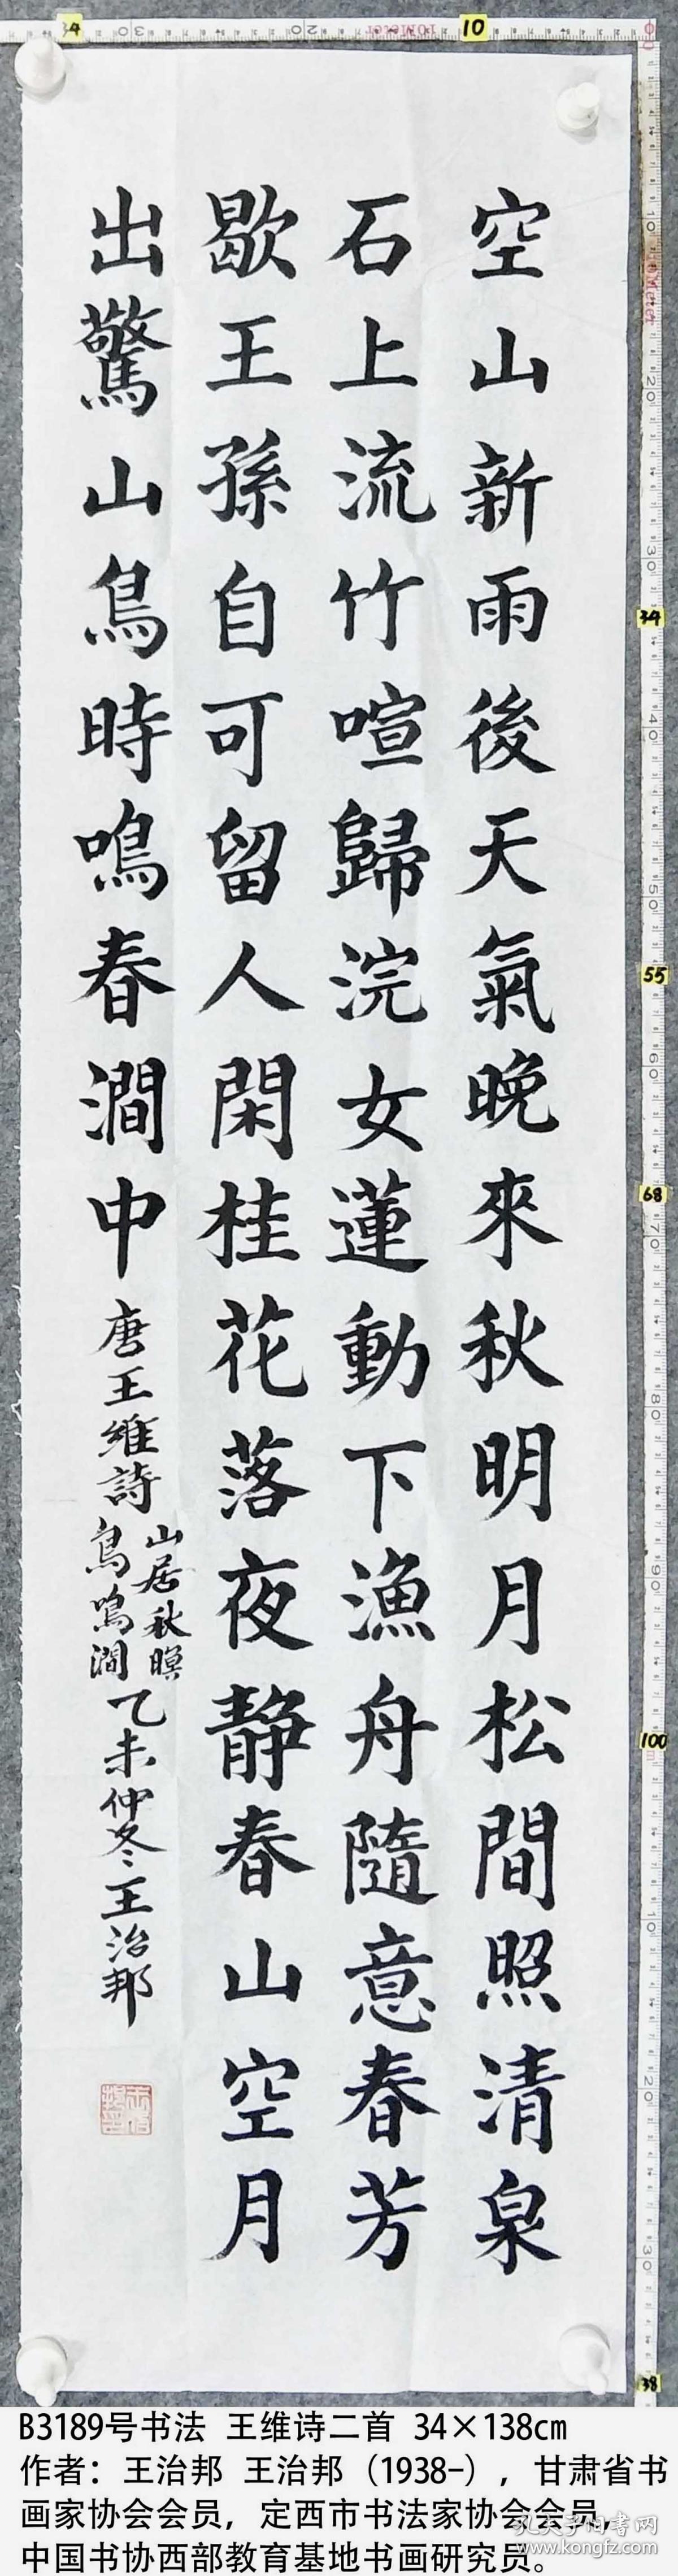 空山新雨後天氣晚來秋明月松間照清泉
石上流竹喧歸浣女蓮動下漁舟隨意春芳
歇王孫自可留人閑桂花落夜静春山空月
出驚山鳥時鳴春澗中
唐王維詩
山居秋暝
鳥鳴澗
乙未仲冬王治邦
B3189号书法 王维诗二首 34×138cm
作者：王治邦 王治邦（1938-），甘肃省书
画家协会会员，定西市书法家协会会员，
中国书协西部教育基地书画研究员。
孔夫子旧书网
www.kongfz.com
34
10
34
55
68
100
38
10Meter